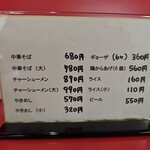 中華そば 680円
中華そば(大) 780円
チャーシューメン 890円
チャーシューメン(大) 990円
やきめし 570円
やきめし(小) 320円
ギョーザ(6ヶ) 360円
鶏からあげ(6個) 560円
ライス 160円
ライス(小) 110円
ビール 550円